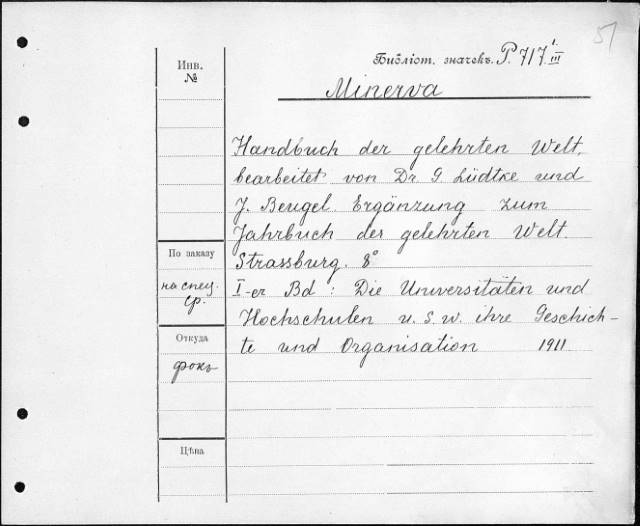 51
Библіот. значекъ. P. 717 I/III
Инв. №
Minerva
Handbuch der gelehrten Welt,
bearbeitet von Dr G. Lüdtke und
J. Beugel. Ergänzung zum
Jahrbuch der gelehrten Welt.
Strassburg. 8°
I-er Bd: Die Universitäten und
Hochschulen u. s. w. ihre Geschich-
te und Organisation 1911
По заказу
на спец.
ср.
Откуда
фокъ
Цѣна